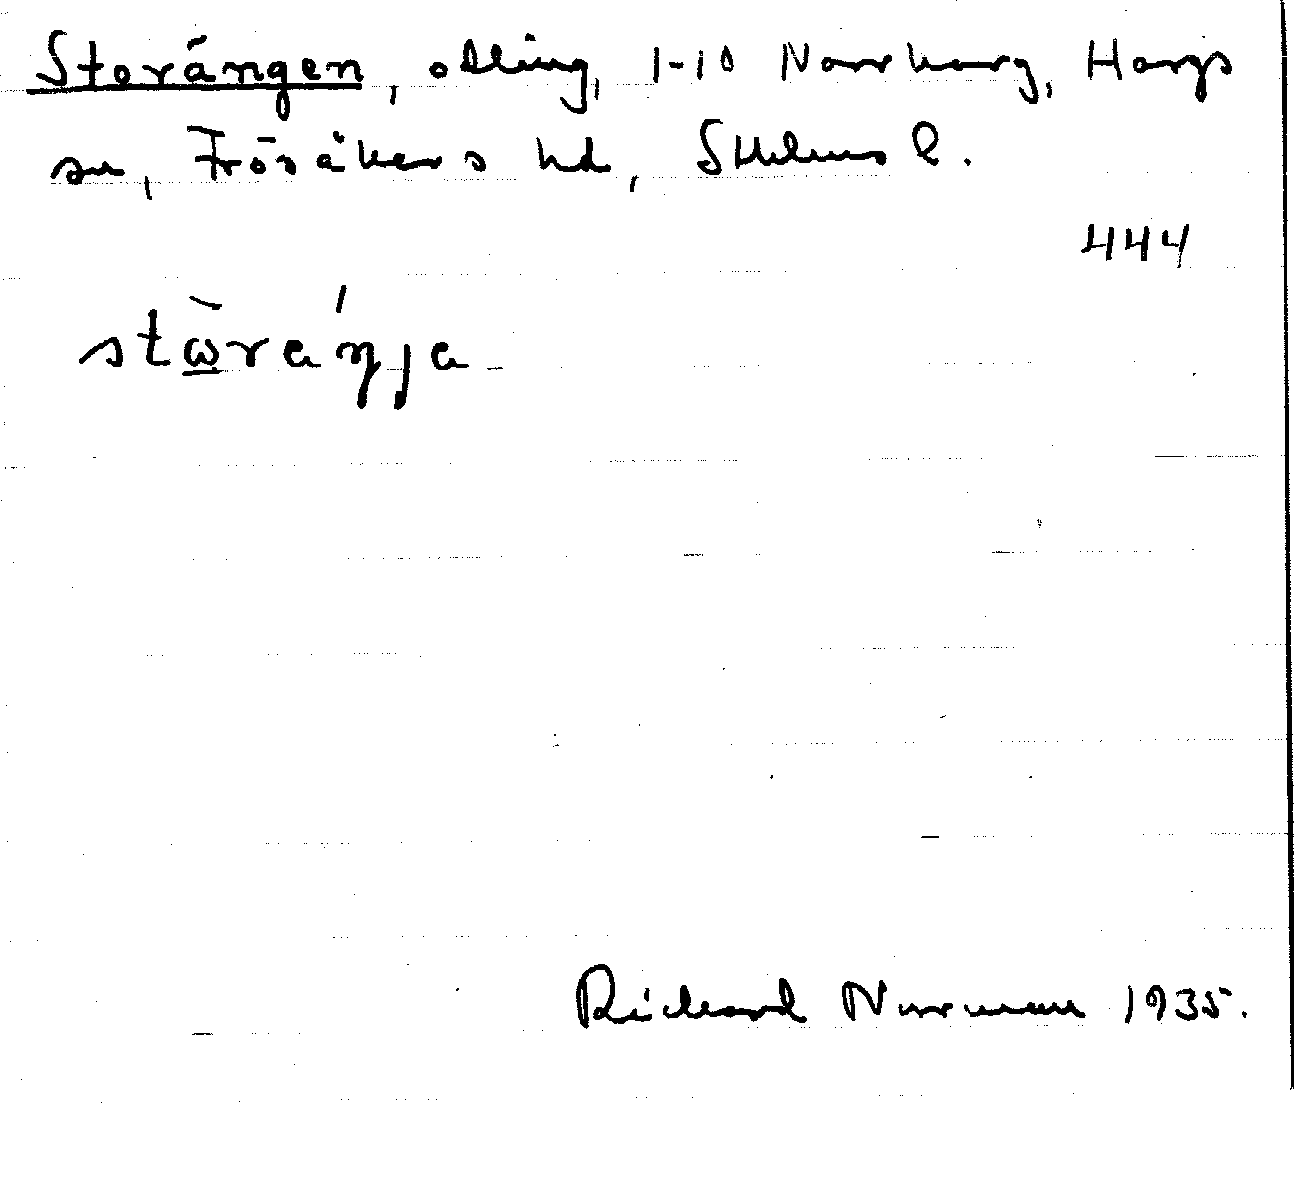 Storängen, odling, 1-10 Norrharg, Hargs
sn, Frösåkers hd, Sthlms l.
444
Rickard Norman 1935.